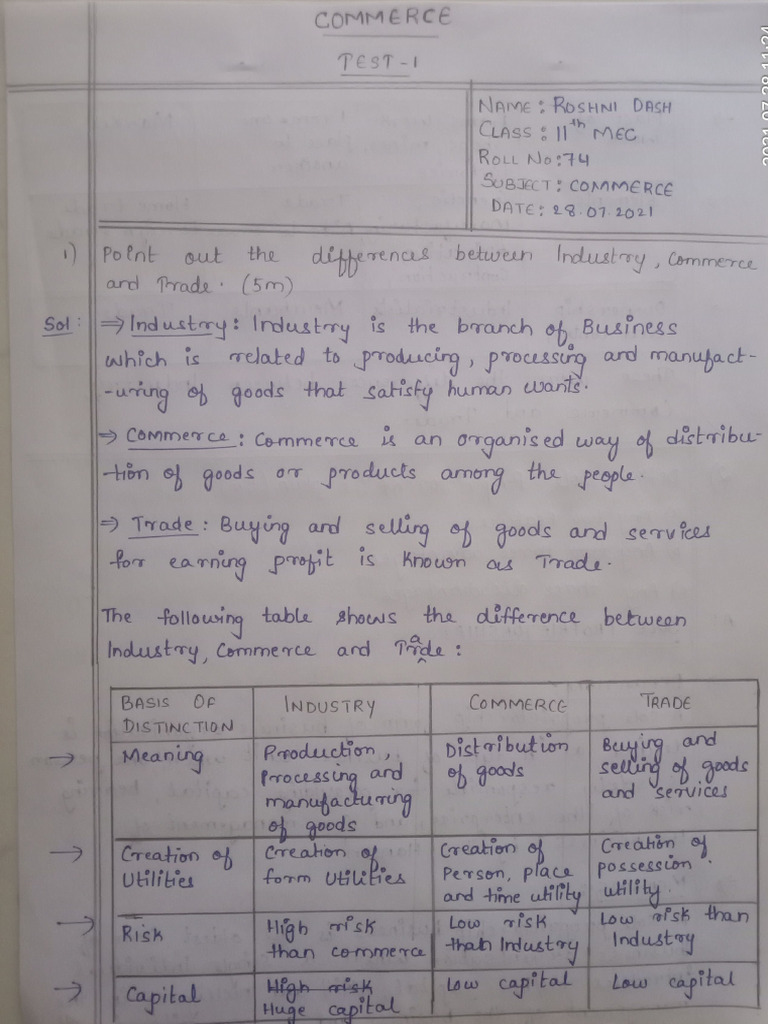 COMMERCE
TEST-1
2021-07-28 11:24
NAME: ROSHNI DASH
CLASS: 11th MEC
ROLL NO: 74
SUBJECT: COMMERCE
DATE: 28.07.2021
1) Point out the differences between Industry, Commerce
and Trade. (5m)
Sol: ⇒ Industry: Industry is the branch of Business
which is related to producing, processing and manufact-
-uring of goods that satisfy human wants.
⇒ Commerce: Commerce is an organised way of distribu-
-tion of goods or products among the people.
⇒ Trade: Buying and selling of goods and services
for earning profit is known as Trade.
The following table shows the difference between
Industry, Commerce and Trade:
BASIS OF
DISTINCTION
INDUSTRY
COMMERCE
TRADE
→ Meaning
Production,
Processing and
manufacturing
of goods
Distribution
of goods
Buying and
selling of goods
and services
→ Creation of
Utilities
Creation of
form Utilities
Creation of
Person, place
and time utility
Creation of
possession
utility.
→ Risk
High risk
than commerce
Low risk
than Industry
Low risk than
Industry
→ Capital
High risk
Huge capital
Low capital
Low capital